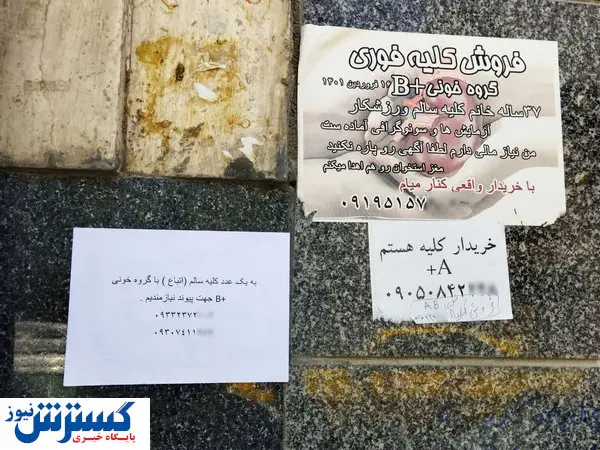 فروش کلیه فوری
گروه خونی +B ۱۶ فروردین ۱۴۰۱
۳۷ساله خانم کلیه سالم ورزشکار
آزمایش ها و سونوگرافی آماده ست
من نیاز مالی دارم لطفا آگهی رو پاره نکنید
مغز استخوان رو هم اهدا میکنم
با خریدار واقعی کنار میام
۰۹۱۹۵۱۵۷
خریدار کلیه هستم
A+
۰۹۰۵۰۸۴۲
به یک عدد کلیه سالم (اتباع ) با گروه خونی
B+ جهت پیوند نیازمندیم .
۰۹۳۳۲۳۷۲
۰۹۳۰۷۴۱۱
گسترش نیوز
پایگاه خبری